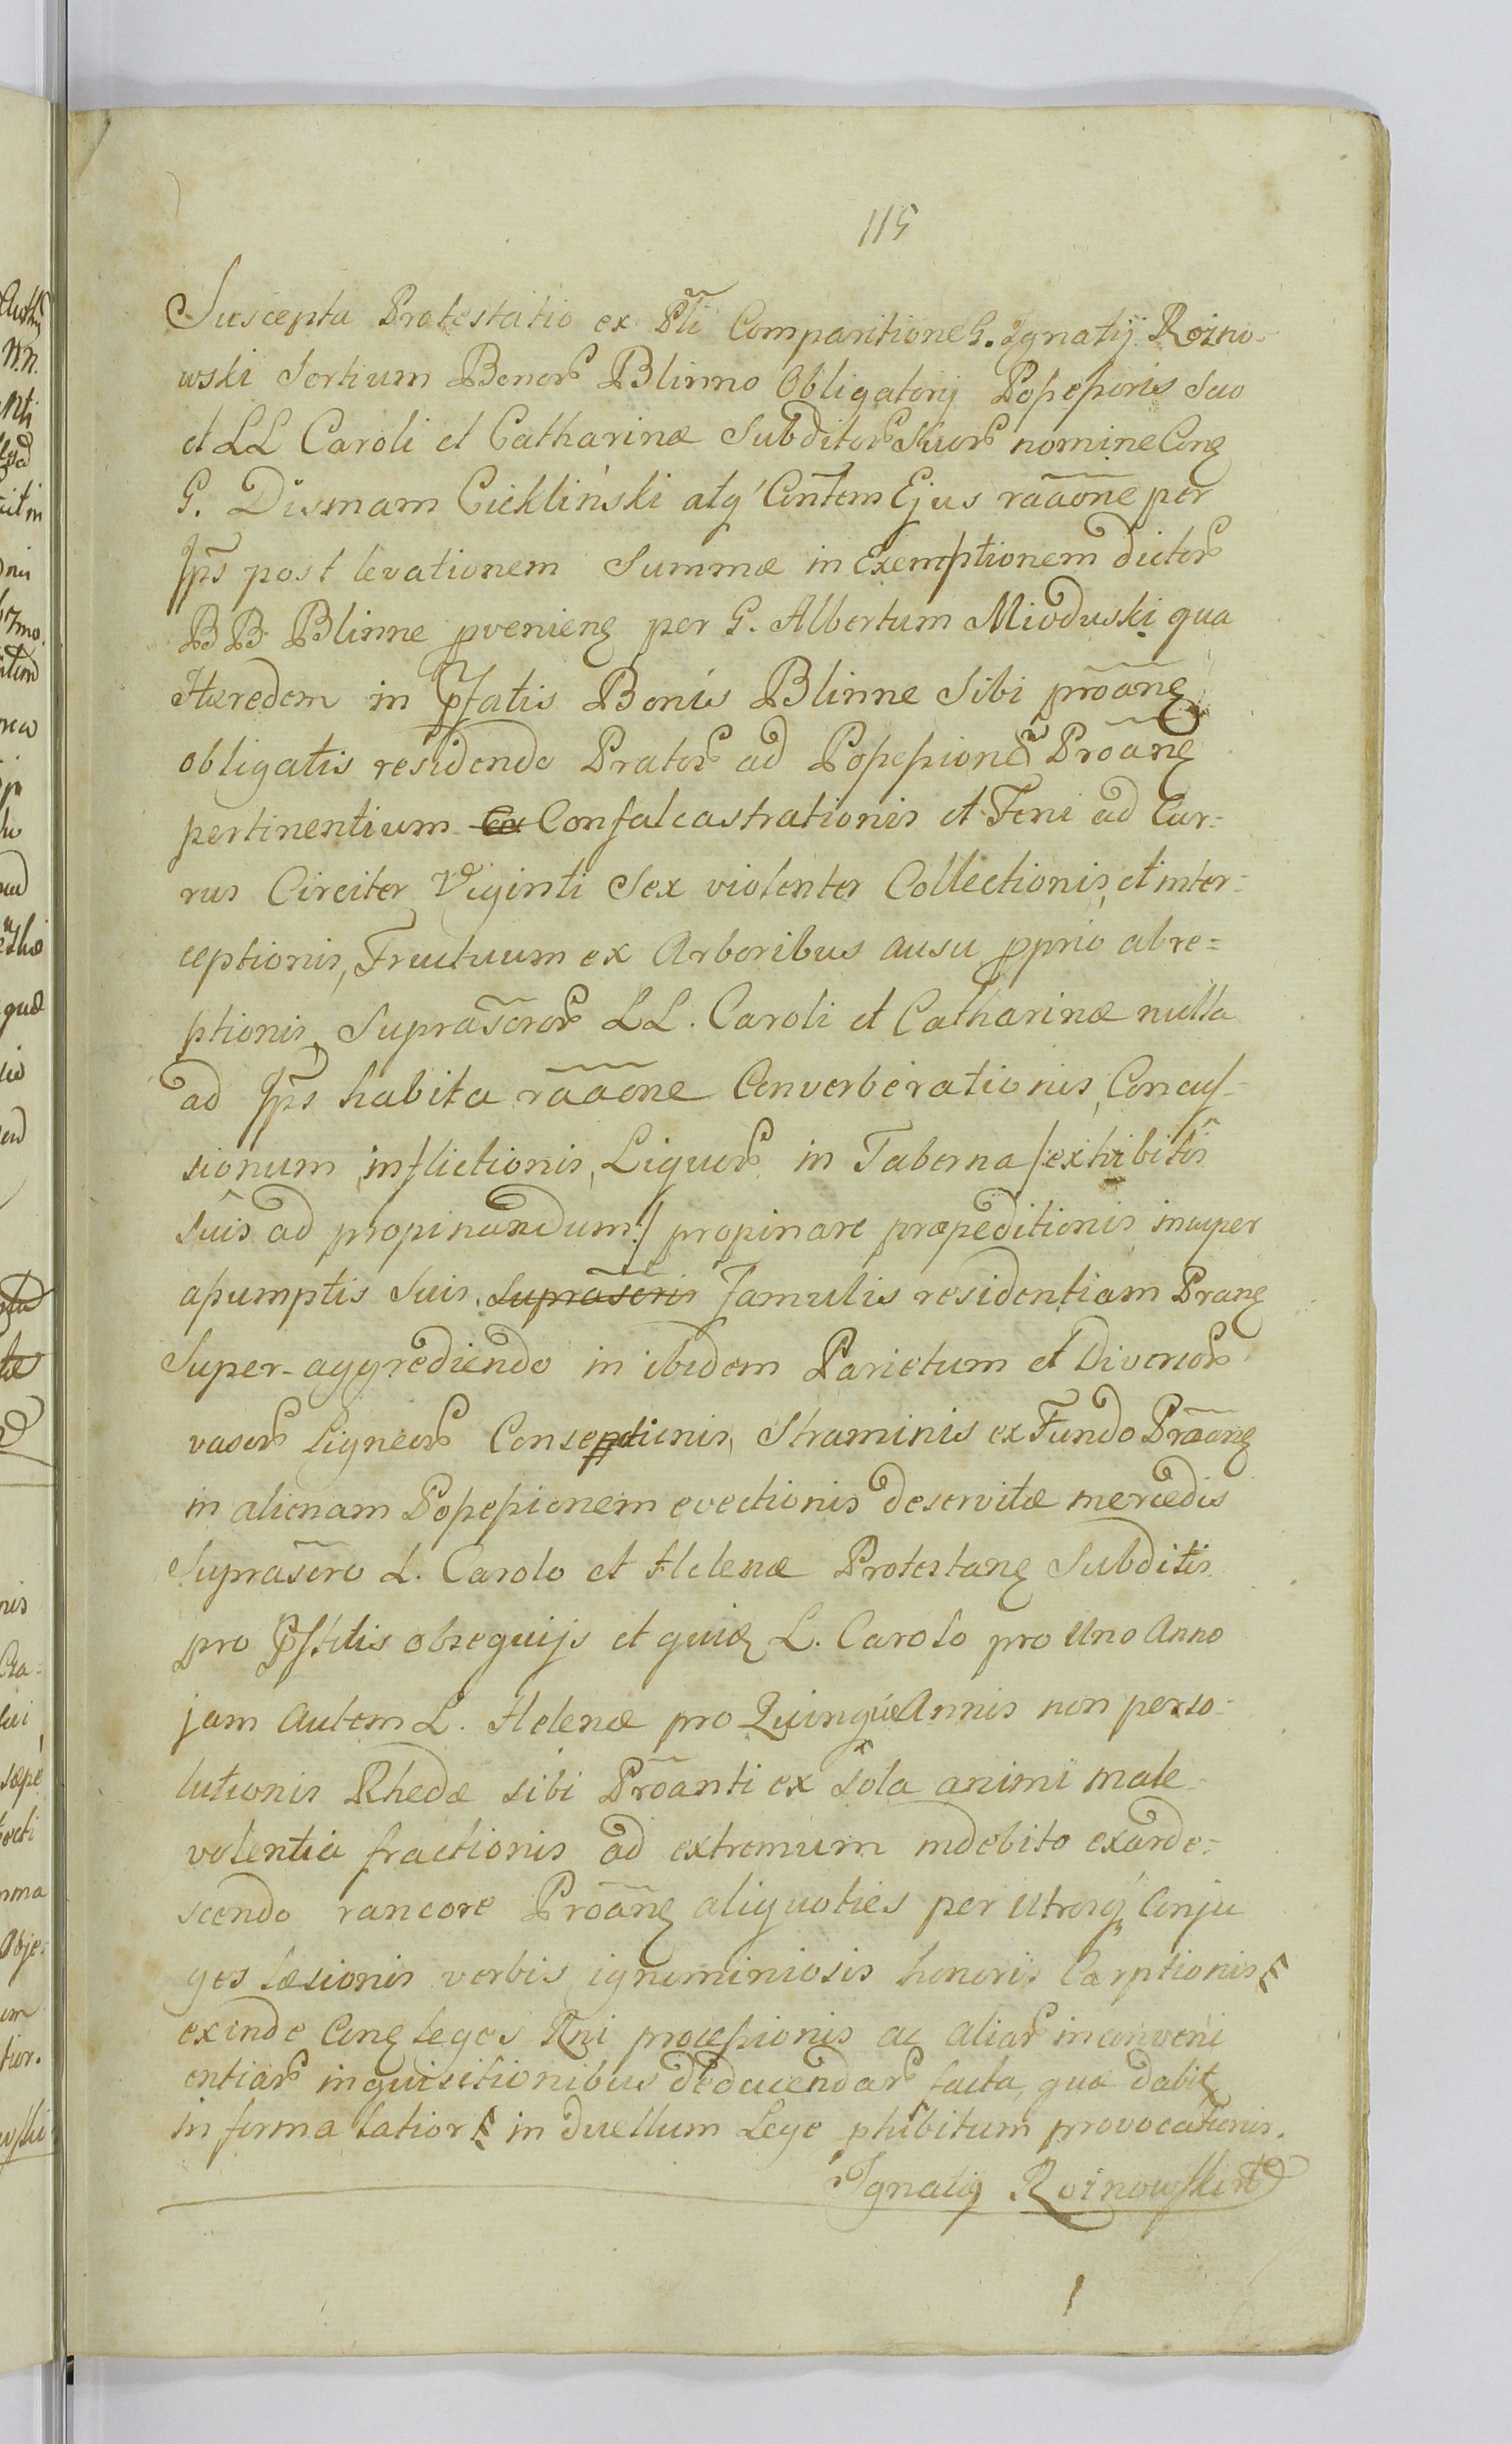 115
Suscepta Protestatio ex Pli Comparitione G. Ignatij Rozno-
wski Sortium Bonor Blinno Obligatorij Possessoris Suo
et LL Caroli et Catharinæ Subditor Suor nomine Con
G. Dismam Cieklinski atq Contem Ejus raaone per
Ips post levationem Summæ in Exemptionem dictor
BB Blinne pvenien per G. Albertum Mioduski qua
Hæredem in Pfatis Bonis Blinne Sibi proan
obligatis residendo Prator ad Possessione Proan
pertinentium Confalcastrationis et Feni ad Cur-
rus Circiter Viginti Sex violenter Collectionis, et inter-
ceptionis, Fructuum ex Arboribus ausu pprio abre=
ptionis, Suprascror LL. Caroli et Catharinæ nulla
ad Ips habita raaone Converberationis, Concus-
sionum inflictionis, Liquor in Taberna /exhibitis
suis ad propinandum:/ propinare præpeditionis insuper
assumptis Suis Suprascris Famulis residentiam Pran
Super-aggrediendo in ibidem Parietum et Diversor
vasor Ligneor Consectionis, Straminis ex Fundo Proan
in alienam Possessionem evectionis deservitæ mercedis
Suprascro L. Carolo et Helenæ Protestan Subditis
pro Pstitis obsequijs et quid L. Carolo pro Uno Anno
jam autem L. Helenæ pro Quinque Annis non perso-
lutionis Rhedæ sibi Proanti ex Sola animi male-
volentia fractionis ad extremum indebito exarde-
scendo rancore Proan aliquoties per Utrosq Conju
ges læsionis verbis ignominiosis honoris Carptionis
exinde Con leges Rni processionis ac aliar inconveni
entiar inquisitionibus deducendar facta, quæ dabit
in forma latiori in duellum Lege phibitum provocationis.
Ignaty Roznowski